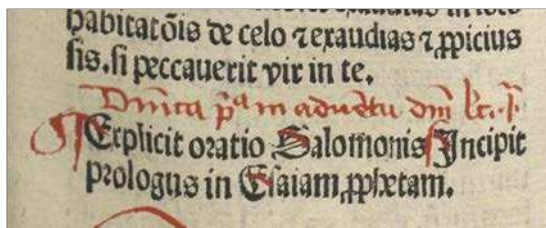 habitatõis de celo ⁊ exaudias ⁊ ꝓpicius
sis. si peccauerit vir in te.
Dnica pᵃ in aduẽtu dñi
Explicit oratio Salomonis Incipit
prologus in Esaiam ꝓphetam.